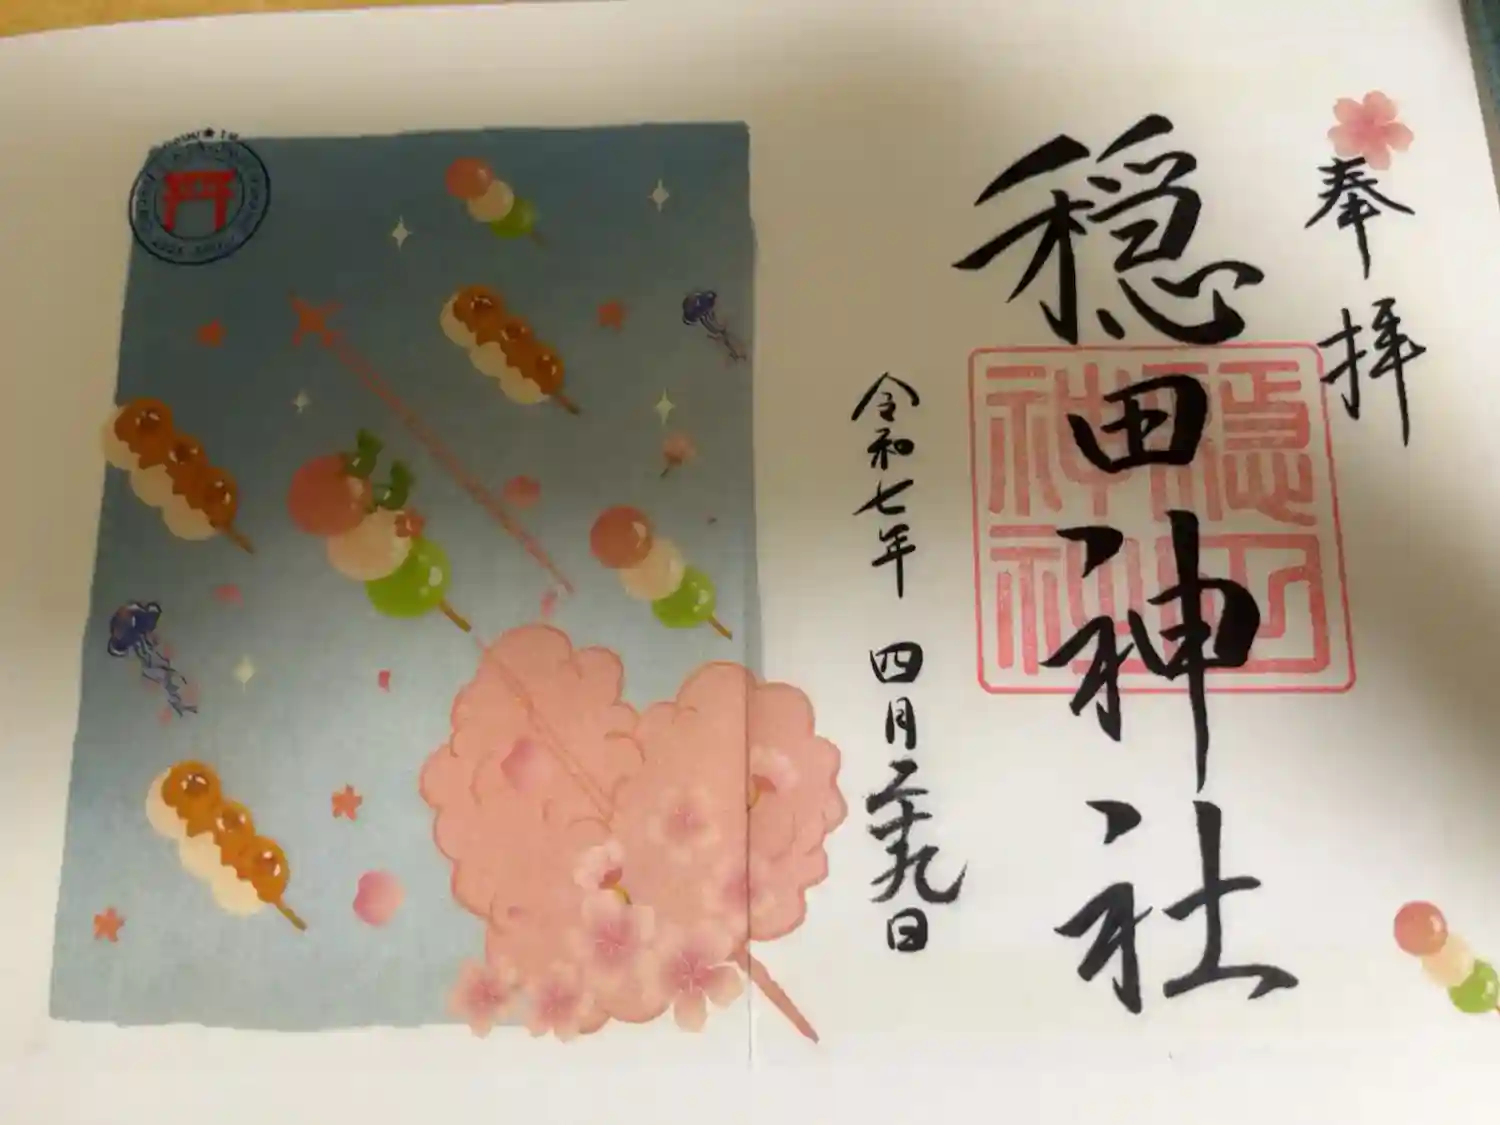 奉拝
穏田神社
穏田
神社
令和七年 四月二十九日